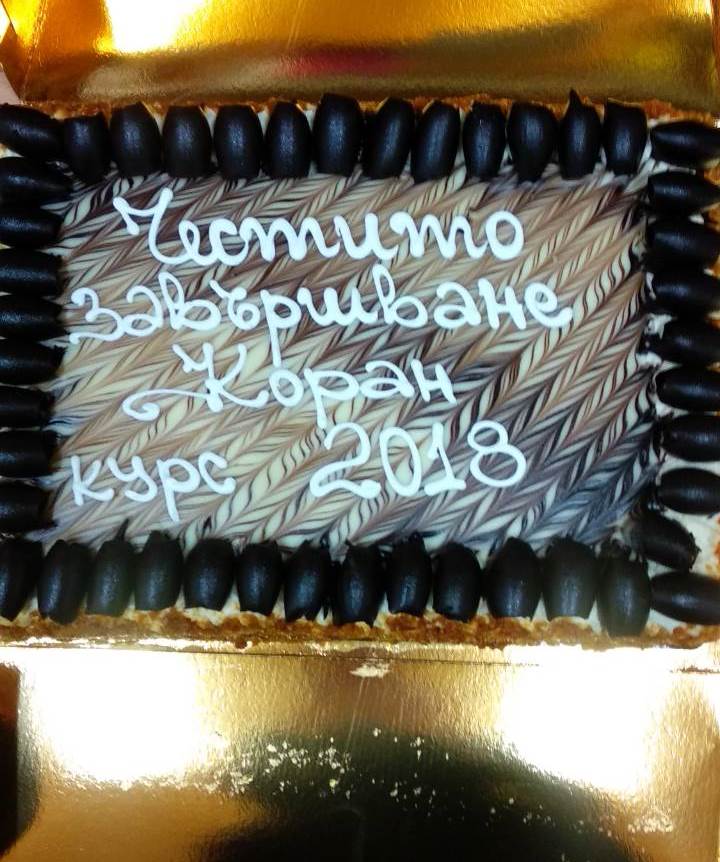 Честито
завършване
Коран
курс 2018